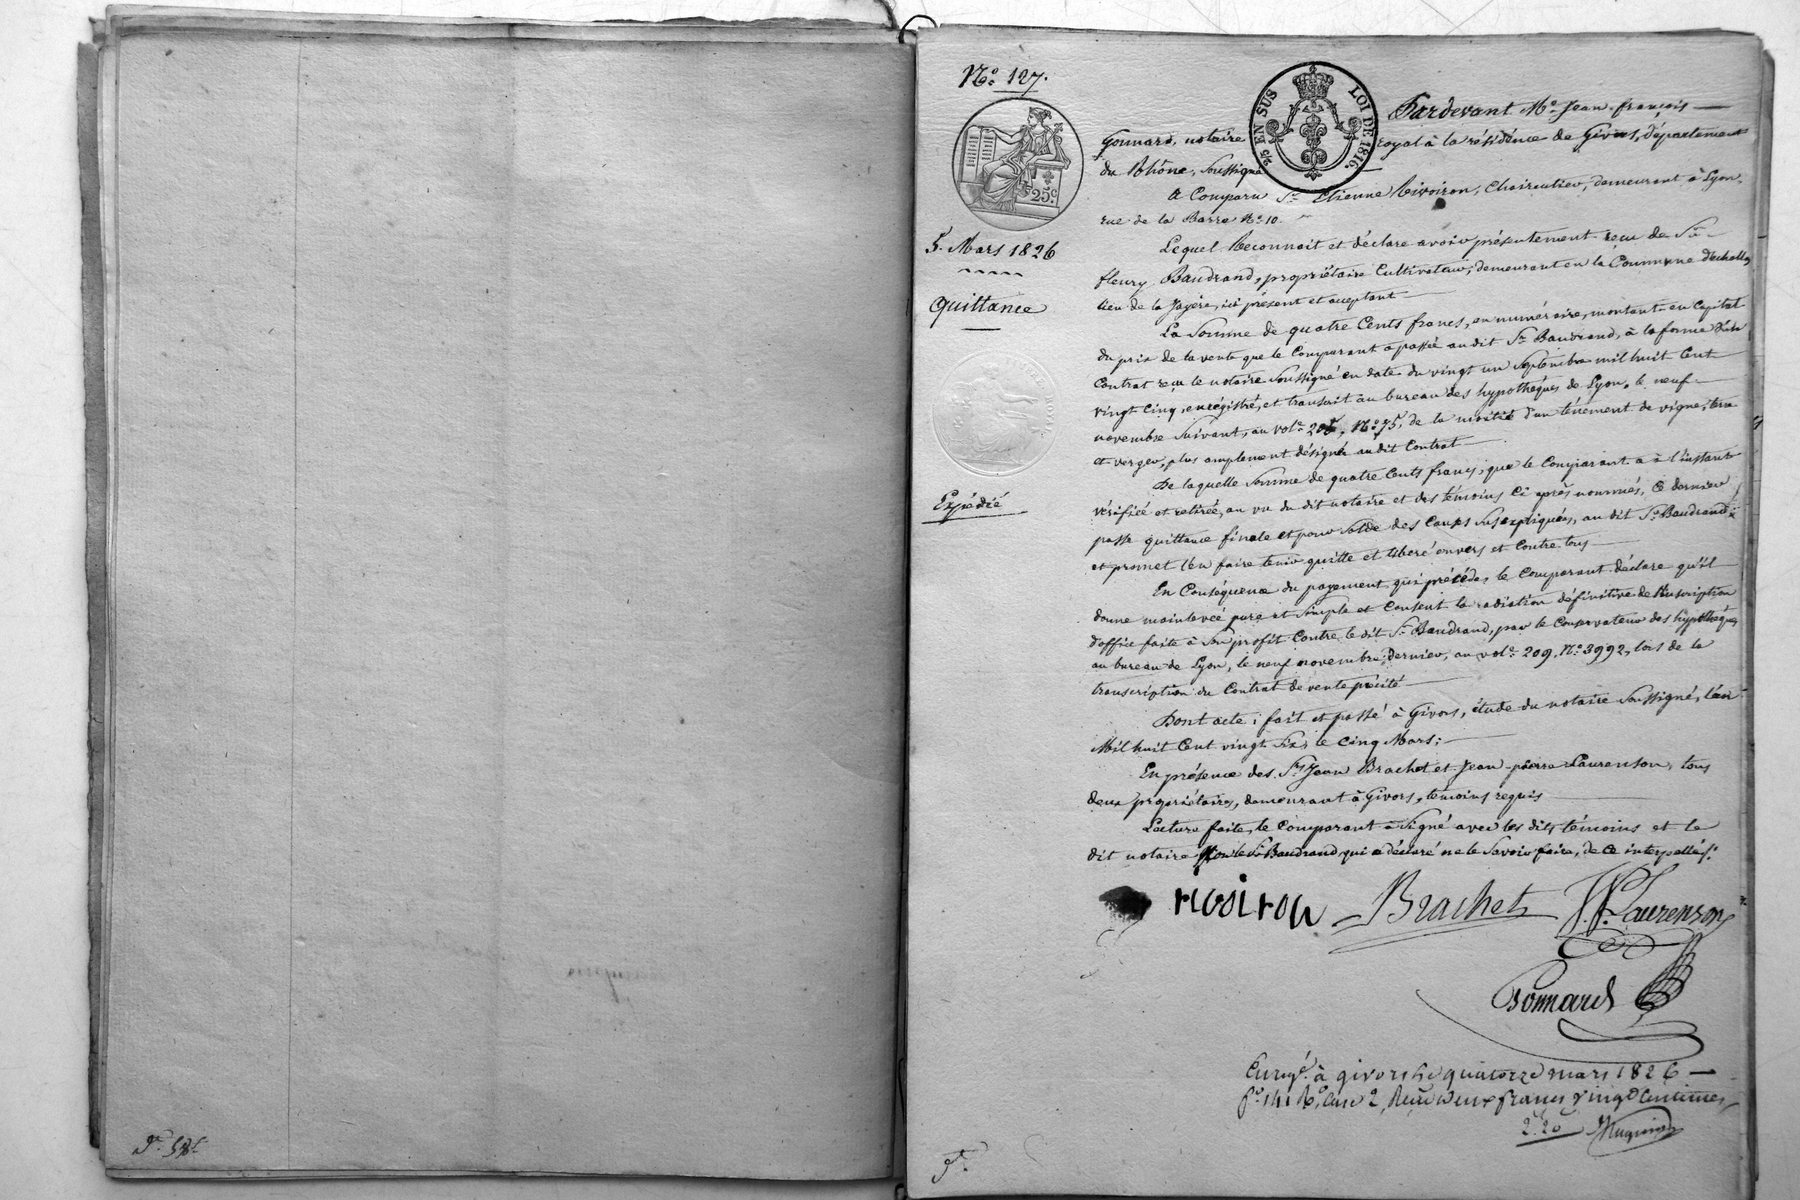 N.o 127.
2/5 EN SUS LOI DE 1816.
25c
5. Mars 1826
Quittance
Expédié
Pardevant Me. Jean-françois
Gonnard, notaire royal à la résidence de Givors, département
du Rhône, Soussigné
a Comparu Sr. Etienne Rivoiron, Chaircutier, demeurant à Lyon,
rue de la Barre No. 10.
Lequel Reconnoit et déclare avoir présentement reçu de Sr.
fleury Baudrand, propriétaire Cultivateur, demeurant en la Commune d'echallas
lieu de la Jayère, ici présent et acceptant
La Somme de quatre Cents francs, en numéraire, montant en Capital
du prix de la vente que le Comparant a passée au dit Sr. Baudrand, à la forme d'un
Contrat reçu le notaire Soussigné en date du vingt un Septembre mil huit Cent
vingt Cinq, enrégistré, et transcrit au bureau des hypothèques de Lyon, le neuf
novembre Suivant, au vole. 205, No. 75, de la moitié d'un ténement de vigne, terre
et verger, plus amplement désigné audit Contrat
De laquelle Somme de quatre Cents francs, que le Comparant a à l'instant
vérifiée et retirée, au vu du dit notaire et des témoins Ci après nommés, Ce dernier
passe quittance finale et pour Solde des Causes Sus expliquées, au dit Sr. Baudrand
et promet l'en faire tenir quitte et libéré envers et Contre tous
En Conséquence du payement qui précéde, le Comparant déclare qu'il
donne mainlevée pure et Simple et Consent la radiation définitive de l'inscription
d'office faite à Son profit Contre le dit Sr. Baudrand, par le Conservateur des hypothèques
au bureau de Lyon, le neuf novembre dernier, au vole. 209, No. 3992, lors de la
transcription du Contrat de vente précité
Dont acte; fait et passé à Givors, étude du notaire Soussigné, l'an
Mil huit Cent vingt Six, le Cinq Mars;
En présence des Srs. Jean Brachet et Jean-pierre Laurenson, tous
deux propriétaires, demeurant à Givors, témoins requis
Lecture faite, le Comparant a Signé avec les dits témoins et le
dit notaire, non le Sr. Baudrand qui a déclaré ne le Savoir faire, de Ce interpellé;
rivoiron Brachet J.P. Laurenson
Gonnard
Enregé. à givors le quatorze mars 1826
fo. 141 Ro. Case 2, Reçu deux francs vingt Centimes
2.20